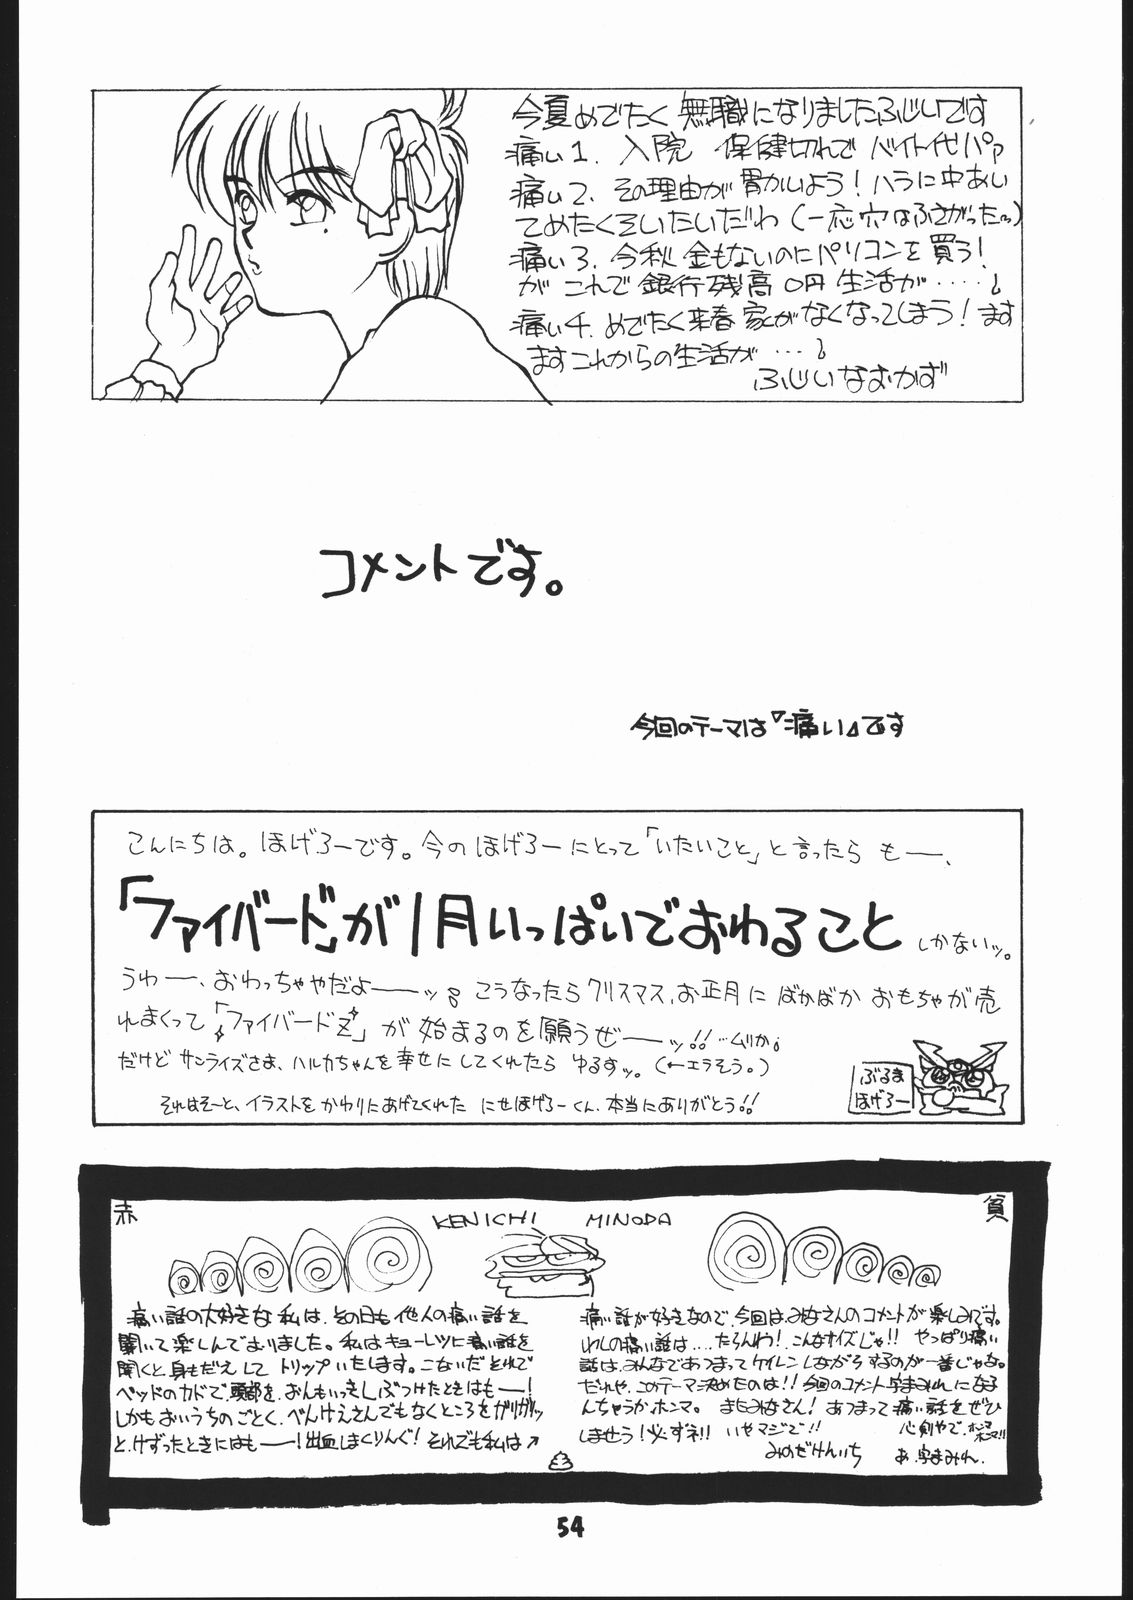 今夏めでたく無職になりましたふじいです
痛い1. 入院 保健切れで バイト代パァ
痛い2. その理由が胃かいよう！ハラに中あい
てめたくそいたいだわ（一応穴はふさがった〜）
痛い3. 今秋金もないのにパソコンを買う！
が これで銀行残高0円 生活が・・・・・
痛い4. めでたく来春家がなくなってしまう！ます
ますこれからの生活が・・・
ふじいなおかず
コメントです。
今回のテーマは『痛い』です
こんにちは。ほげろーです。今のほげろーにとって「いたいこと」と言ったら もー、
「ファイバード」が1月いっぱいでおわること しかないッ。
うわー、おわっちゃやだよーッ。こうなったらクリスマス、お正月にばかばかおもちゃが売
れまくって「ファイバードZ」が始まるのを願うぜーッ!! …ムリか。
だけど サンライズさま、ハルカちゃんを幸せにしてくれたら ゆるすッ。（←エラそう。）
それはそーと、イラストをかわりにあげてくれた にせほげろーくん、本当にありがとう!!
ぶるま
ほげろー
赤
KENICHI MINODA
貧
痛い話の大好きな私は、その日も他人の痛い話を
聞いて楽しんでおりました。私はキョーレツに痛い話を
聞くと身もだえして トリップいたします。こないだ それで
ベッドのカドで、頭部を、おんもいっきしぶつけたときはもー！
しかもおいうちのごとく、べんけえさんでもなくところをガリガリッ
と、けずったときにはもー！出血しまくりんぐ！それでも私は↗
痛い話が好きなので、今回はみなさんのコメントが楽しみです。
わしの痛い話は…たらんわ！こんなサイズじゃ!! やっぱり痛い
話は、みんなであつまってケイレンしながらするのが一番じゃな。
だれや、このテーマ決めたのは!! 今回のコメント字まみれになる
んちゃうか、ホンマ。 またみなさん！あつまって痛い話をぜひ
しませう！必ずネ!! いやマジで!! 心剣やで、ホンマホンマ!!
みのだけんいち
あ、字まみれ、
54